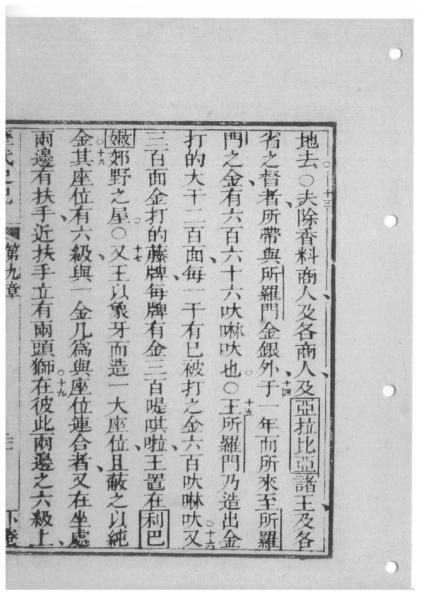 地去○夫除香料商人及各商人及亞拉比亞諸王及各
十三
十四
省之督者所帶與所羅門金銀外于一年而所來至所羅
門之金有六百六十六吠啉吠也○王所羅門乃造出金
十五
打的大干二百面每一干有已被打之金六百吠啉吠又
十六
三百面金打的藤牌每牌有金三百㖷唭啦王置在利巴
嫩郊野之屋○又王以象牙而造一大座位且蔽之以純
十七
金其座位有六級與一金几爲與座位連合者又在坐處
十八
兩邊有扶手近扶手立有兩頭獅在彼此兩邊之六級上
十九
歷代史記 第九章 三 下卷